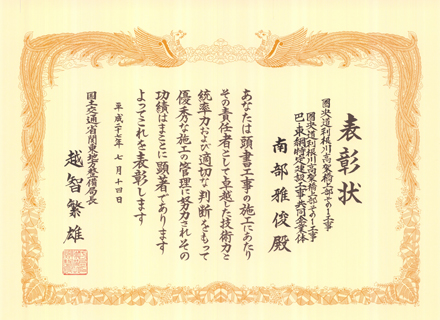 表彰状
圏央道利根川高架橋上部その１工事
圏央道利根川高架橋上部その１工事
巴・東綱特定建設工事共同企業体
南部雅俊殿
あなたは頭書工事の施工にあたり
その責任者として卓越した技術力と
統率力および適切な判断をもって
優秀な施工の管理に努力されその
功績はまことに顕著であります
よってこれを表彰します
平成二十七年七月十四日
国土交通省関東地方整備局長
越智繁雄